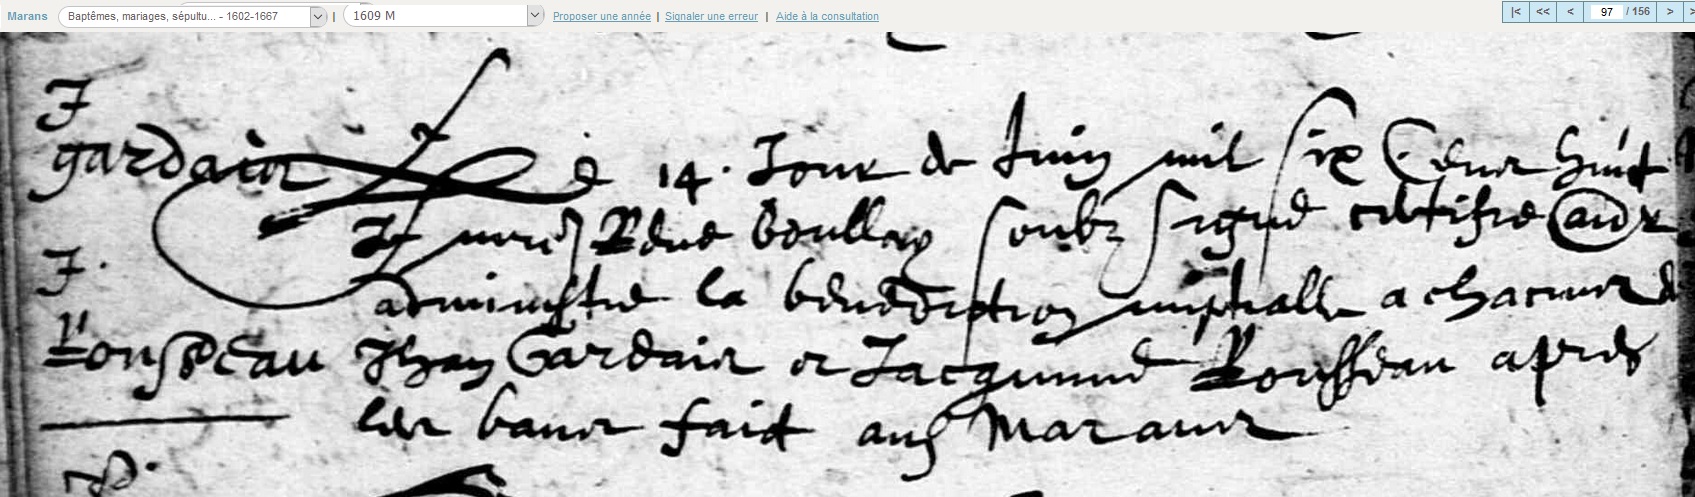 Marans Baptêmes, mariages, sépultu... - 1602-1667 | 1609 M Proposer une année | Signaler une erreur | Aide à la consultation |< << < 97 / 156 > >
J
gardain Le 14. Jour de Juin mil six Cens huict
Je René boullay soubz signé certifie avoir
J.
administré la benediction nuptialle a chacuns de
Rousseau Jhan Gardain et Jacquine Rousseau apres
les bans faict aud Marans